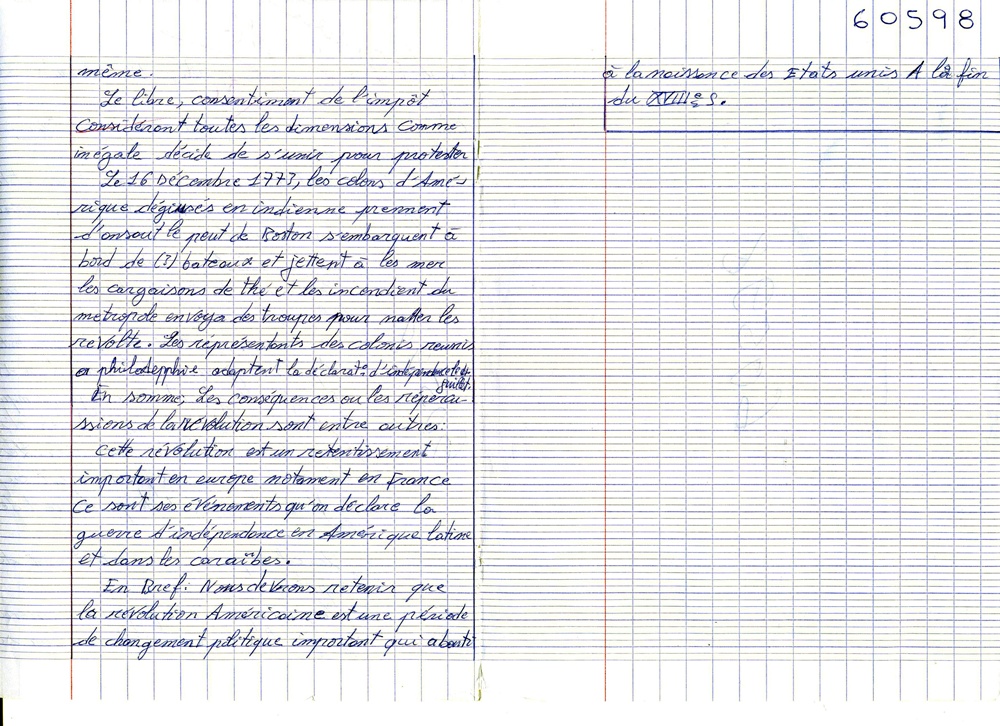 60598
même.
Le libre, consentiment de l'impôt
considérant toutes les dimensions comme
inégale décide de s'unir pour protester
Le 16 Décembre 1773, les colons d'Amé-
rique dégiusés en indienne prennent
d'ansaut le peut de Boston s'embarquent à
bord de (3) bateaux et jettent à les mer
les cargaisons de thé et les incendient du
metropole envoya des troupes pour natter les
revolte. Les représentants des colonis reunis
philadepphie adoptent la déclarat° d'indépendance le 4
juillet.
En somme, Les conséquences ou les répercu-
ssions de la révolution sont entre autres:
Cette révolution est un retentissement
important en europe notament en France
Ce sont ses événements qu'on déclare la
guerre d'indépendance en Amérique latine
et dans les caraïbes.
En Bref: Nous devrons retenir que
la révolution Américaine est une période
de changement politique important qui abouti
à la naissance des Etats unis A la fin
du XVIIIe S.